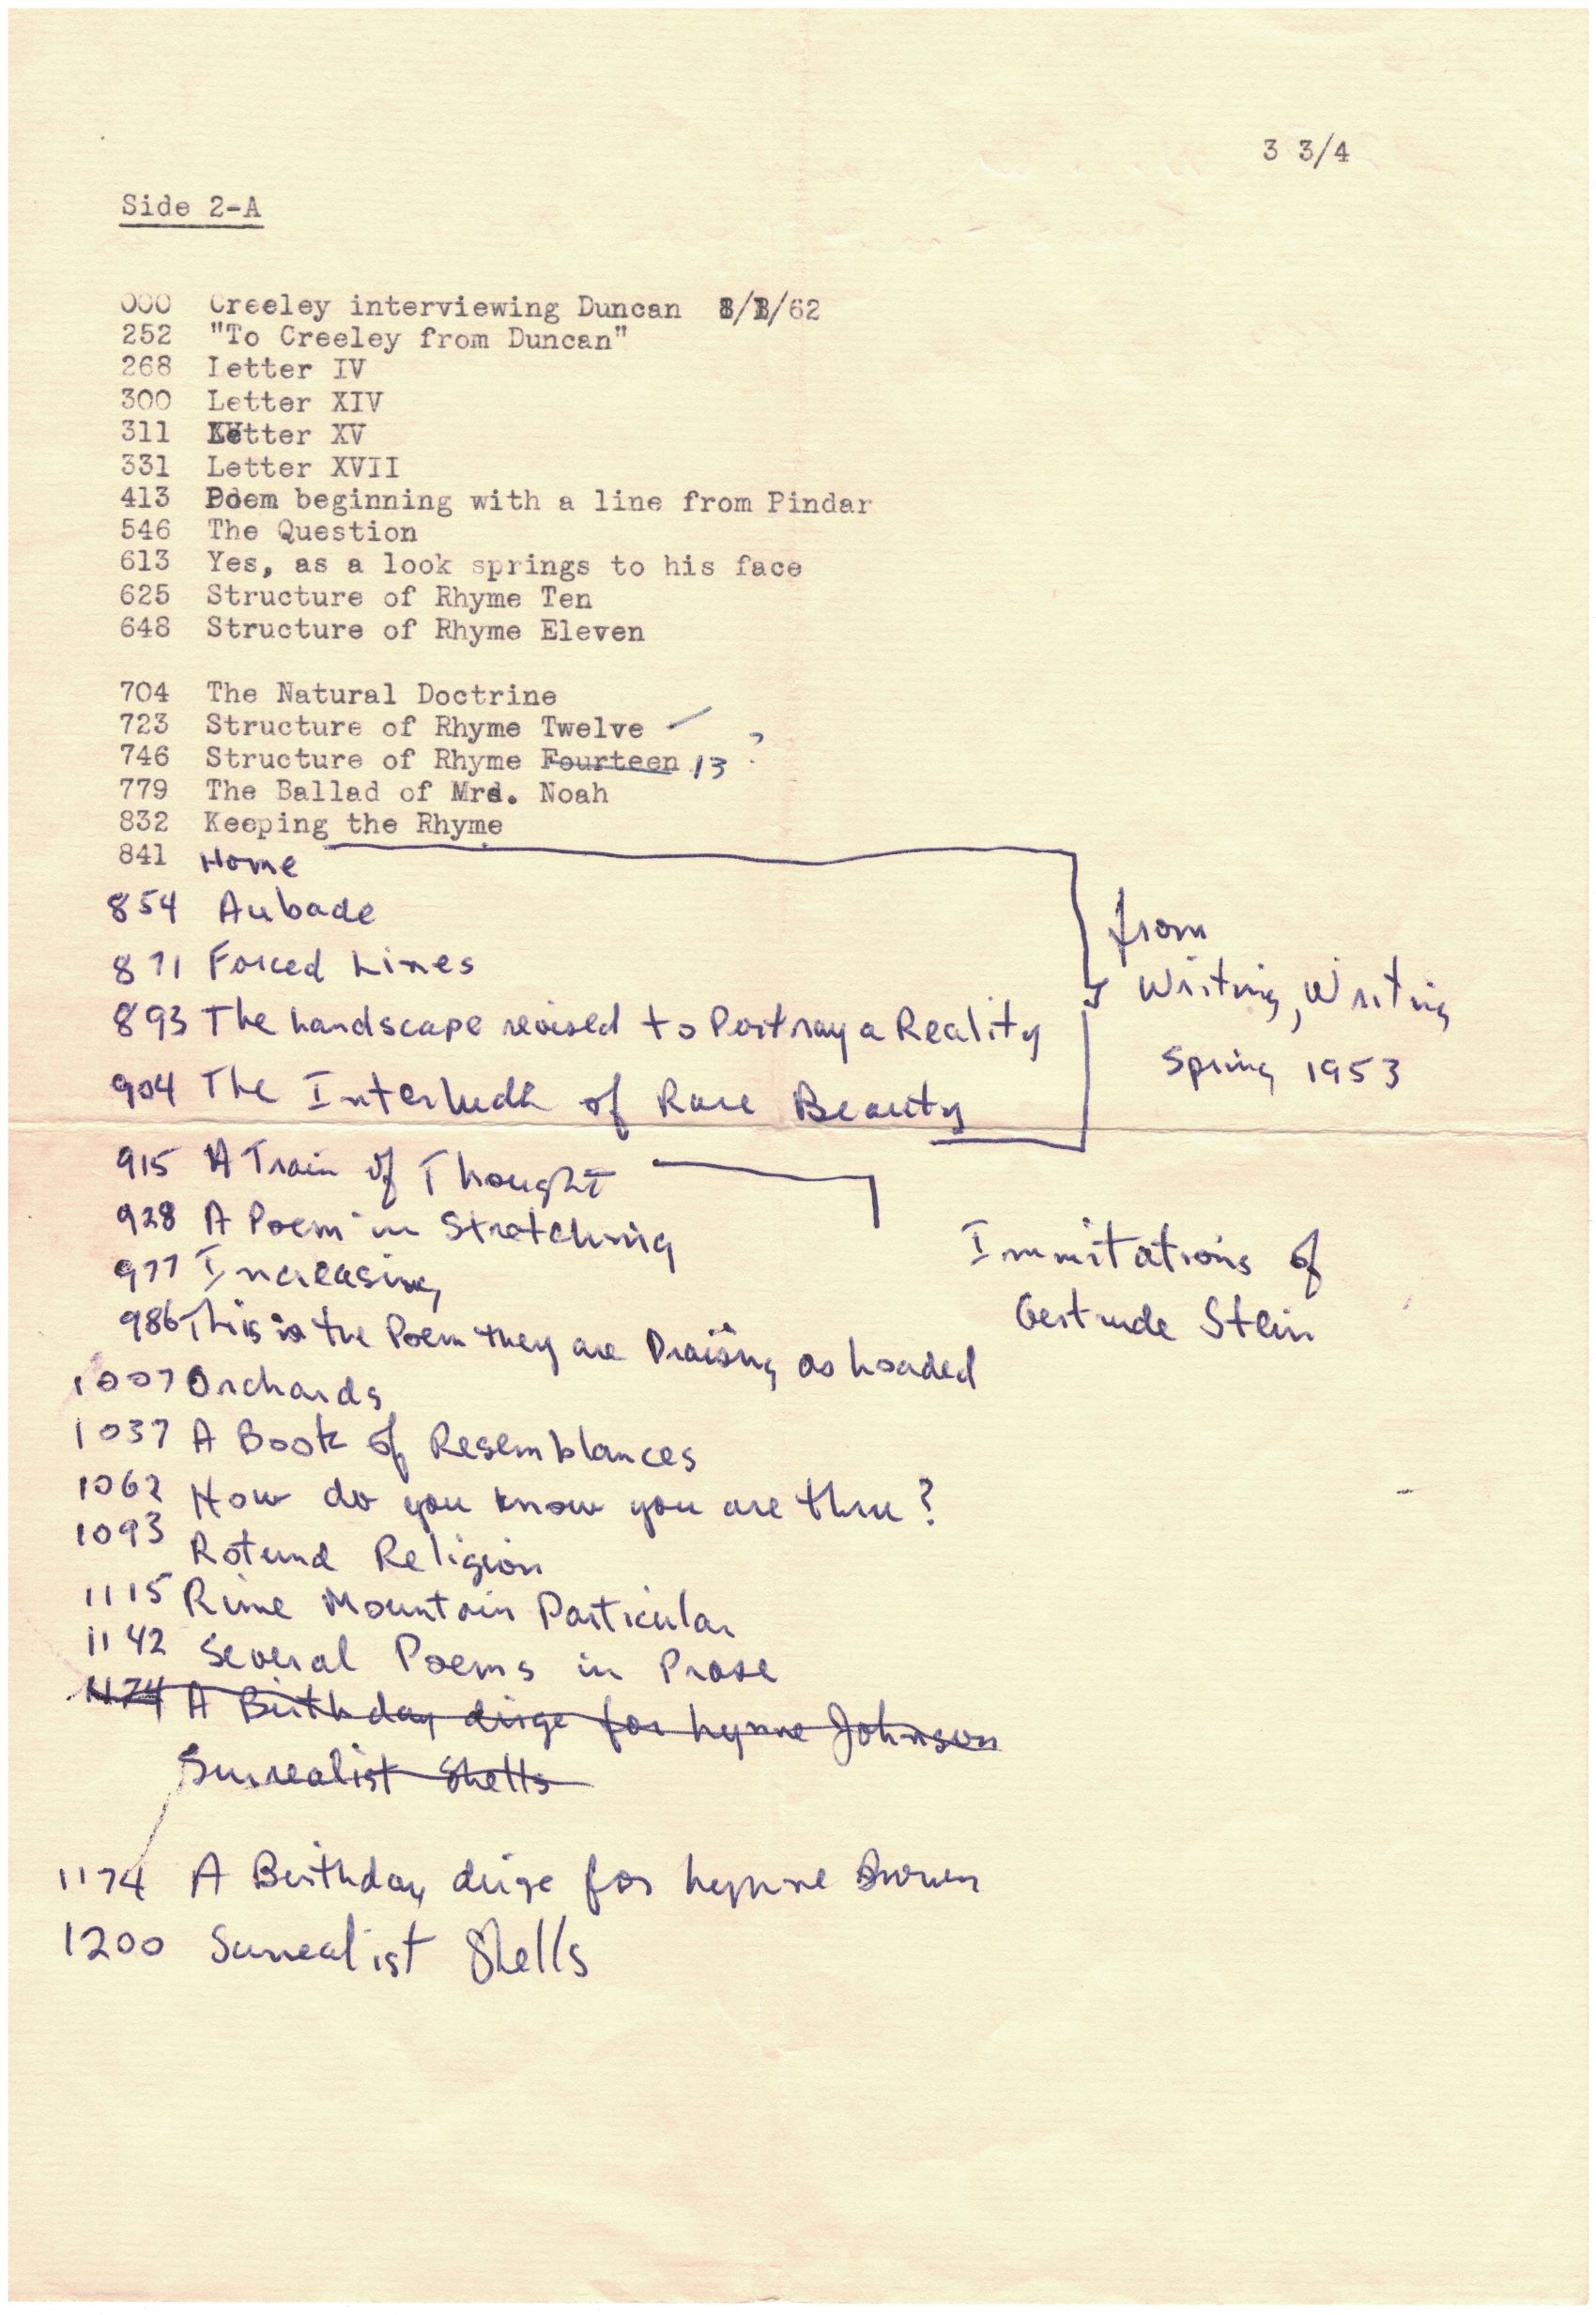 3 3/4
Side 2-A
000 Creeley interviewing Duncan /62
252 "To Creeley from Duncan"
268 Letter IV
300 Letter XIV
311 Letter XV
331 Letter XVII
413 Poem beginning with a line from Pindar
546 The Question
613 Yes, as a look springs to his face
625 Structure of Rhyme Ten
648 Structure of Rhyme Eleven
704 The Natural Doctrine
723 Structure of Rhyme Twelve
746 Structure of Rhyme Fourteen 13 ?
779 The Ballad of Mrs. Noah
832 Keeping the Rhyme
841 Home
854 Aubade
871 Forced Lines
893 The Landscape revised to Portray a Reality
904 The Interlude of Rare Beauty
from
Writing, Writing
Spring 1953
915 A Train of Thought
928 A Poem in Stretching
977 Increasing
986 This is the Poem they are Praising as Loaded
Immitations of
Gertrude Stein
1007 Orchards
1037 A Book of Resemblances
1062 How do you know you are thru?
1093 Rotund Religion
1115 Rime Mountain Particular
1142 Several Poems in Prose
1174 A Birthday dirge for Lynne Johnson
Surrealist Shells
1174 A Birthday dirge for Lynne Brown
1200 Surrealist Shells